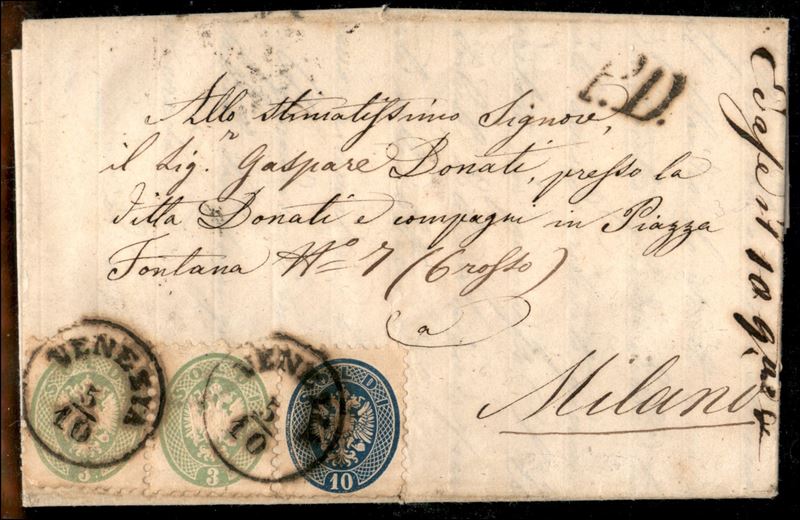 P.D.
Allo stimatissimo Signore,
il Sig.r Gaspare Donati, presso la
Ditta Donati e compagni in Piazza
Fontana No 7 (Grosso)
a
Milano
VENEZIA
5/10
VENEZIA
5/10
3
3
SOLDI
10